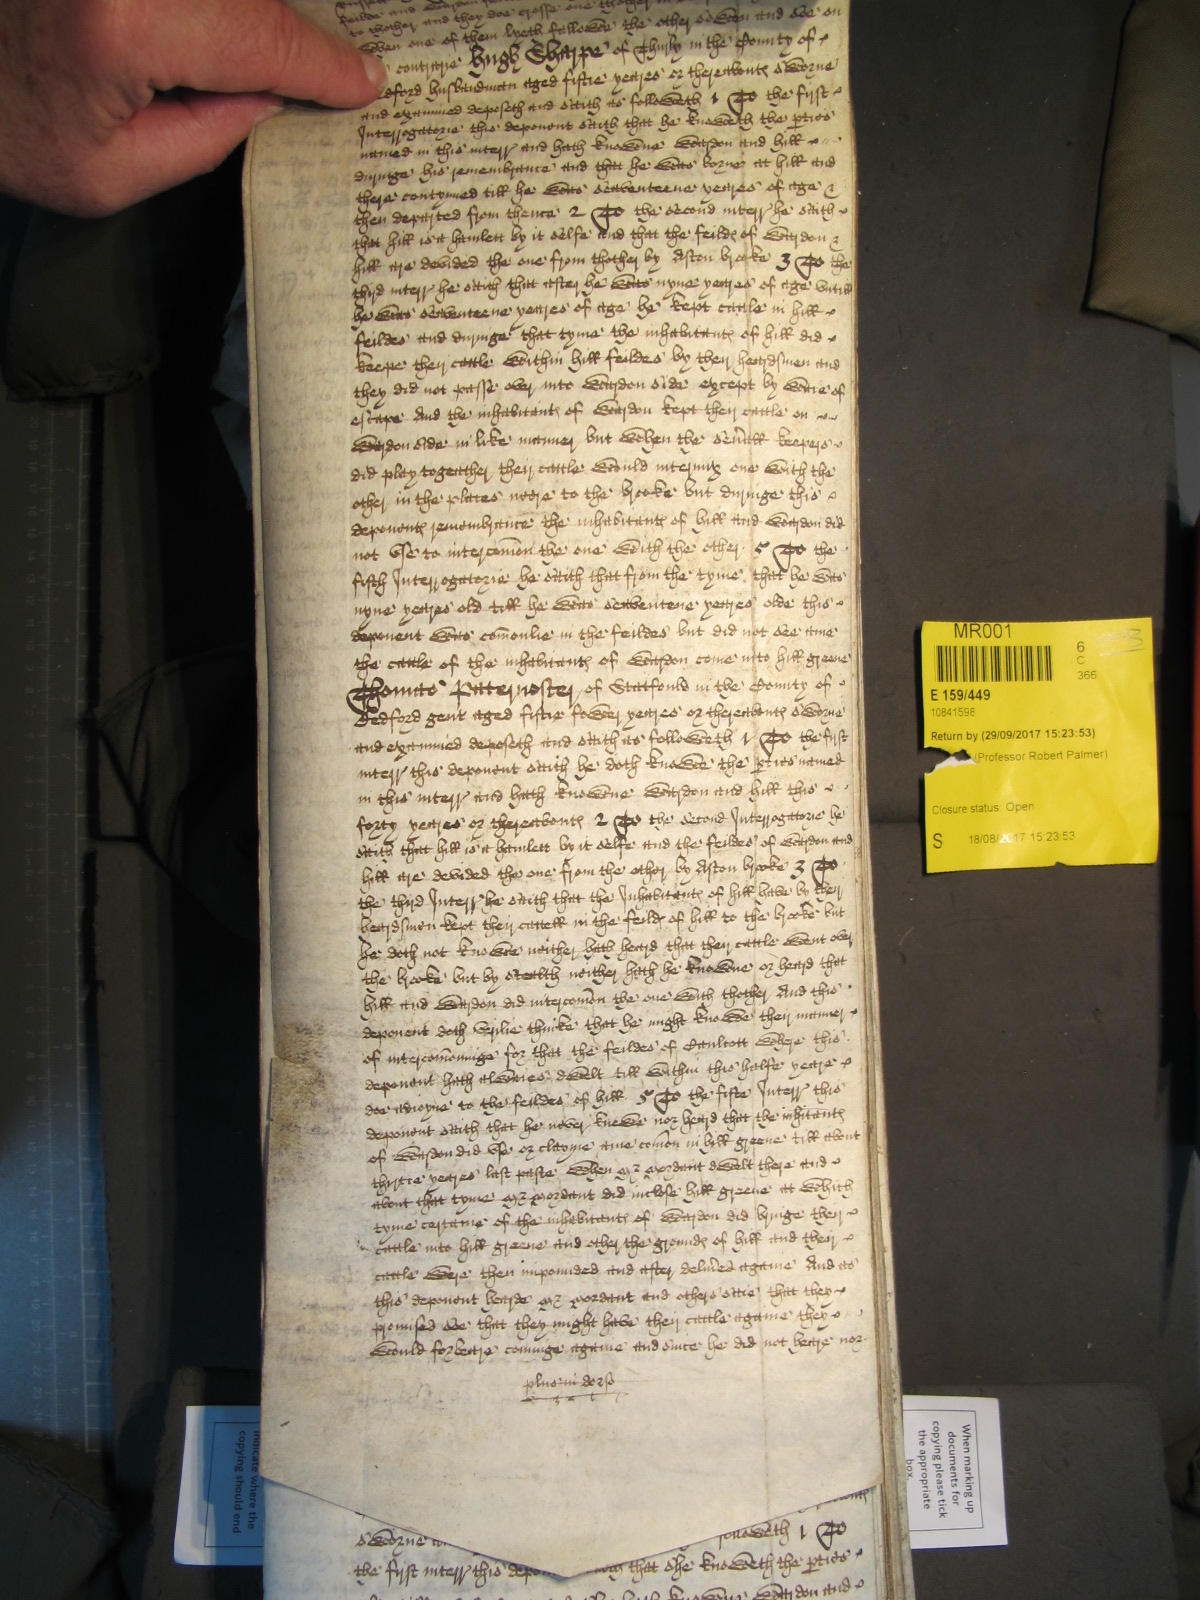 to thother and they doe crosse one thother in
When one of them lyeth fallowe the other sowen and soe on
contrarie Hugh Sharpe of Thirby in the County of
dford husbandman aged fiftie yeares or thereaboute sworne
and examined deposeth and saith as followeth 1 To the first
Interrogatorie this deponent saith that he knoweth the pties
named in this interr and hath knowne Wardon and hill
duringe his remembrance and that he was borne at hill and
there contynued till he was seaventeene yeares of age &
then departed from thence 2 To the second interr he saith
that hill is a hamlett by it selfe and that the feildes of Wardon &
hill are devided the one from thother by Aston brooke 3 To the
third interr he saith that after he was nyne yeares of age untill
he was seaventeene yeares of age he kept cattle in hill
feildes and duringe that tyme the inhabitants of hill did
keepe their cattle within hill feildes by their heardsmen and
they did not passe over into Wardon side except by waie of
escape And the inhabitants of Wardon kept their cattle on
Wardon side in like manner but when the sevrall keepers
did play togeather their cattle would intermix one with the
other in the places neere to the brooke but duringe this
deponents remembrance the inhabitants of hill and Wardon did
not use to intercomon the one with the other 5 To the
fifth Interrogatorie he saith that from the tyme that he was
nyne yeares old till he was seaventene yeares olde this
deponent was comonlie in the feildes but did not see anie
the cattle of the inhabitants of Wardon come into hill greene
Thomas Paternoster of Statfould in the County of
Bedford gent aged fiftie fower yeares or thereabouts sworne
and examined deposeth and saith as followeth 1 To the first
interr this deponent saith he doth knowe the pties named
in this interr and hath knowne Wardon and hill this
forty yeares or thereabouts 2 To the second Interrogatorie he
saith that hill is a hamlett by it selfe and the feildes of Wardon and
hill are devided the one from the other by Aston brooke 3 To
the third Interr he saith that the Inhabitants of hill have by their
heardsmen kept their cattell in the feilds of hill to the brooke but
he doth not knowe neither hath heard that their cattle went over
the brooke but by stealth neither hath he knowne or heard that
hill and Wardon did intercomon the one with thother And this
deponent doth verilie thincke that he might knowe their manner
of intercomoninge for that the feildes of Caulcott where this
deponent hath alwaies dwelt till within this halfe yeare
doe adioyne to the feildes of hill 5 To the fifte Interr this
deponent saith that he never knewe nor heard that the inhitants
of Wardon did use or clayme anie comon in hill greene till about
thirtie yeares last paste when Mr Mordant dwelt there and
about that tyme Mr Mordant did inclose hill greene at which
tyme certaine of the inhabitants of Wardon did bringe their
cattle into hill greene and other the grounds of hill and their
cattle were then impounded and after delivred againe And as
this deponent hearde Mr Mordant and others saie that they
promised soe that they might have their cattle againe they
would forbeare cominge againe and since he did not heare nor
plus in dorso
sworne followeth 1 To
the first interr this depo that she knoweth the pties
Wardon and
MR001
6
C
366
E 159/449
10841598
Return by (29/09/2017 15:23:53)
(Professor Robert Palmer)
Closure status: Open
S 18/08/2017 15:23:53
indicate where the
copying should end
When marking up
documents for
copying please tick
the appropriate
box.